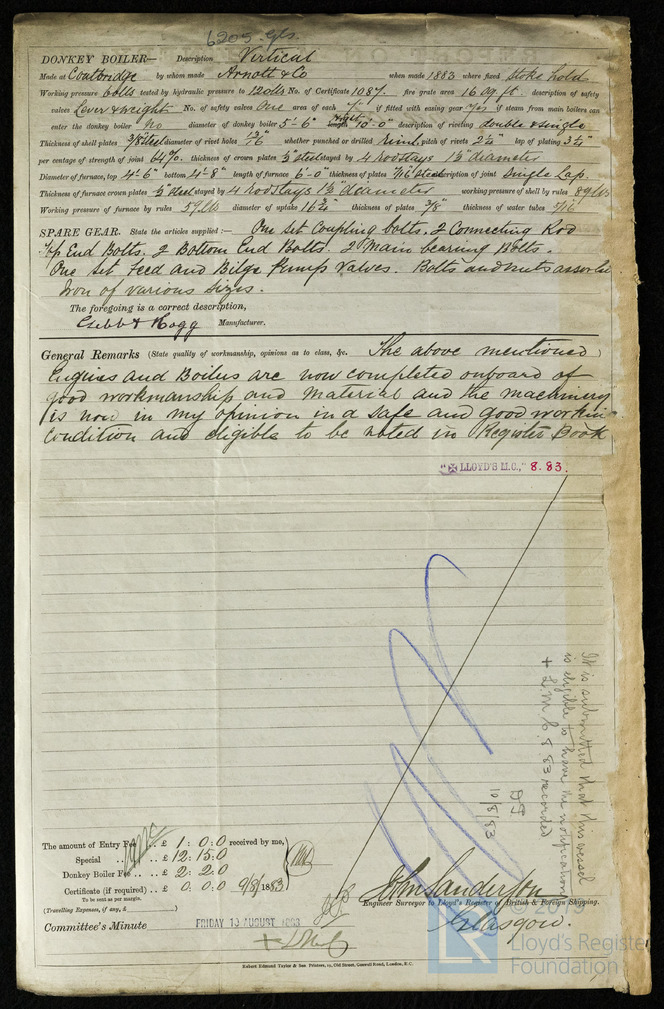 6205 Gls.
DONKEY BOILER— Description Vertical
Made at Coatbridge by whom made Arnott & Co when made 1883 where fixed Stoke hold
Working pressure 60lbs tested by hydraulic pressure to 120lbs No. of Certificate 1087 fire grate area 16 sq. ft. description of safety
valves Lever & weight No. of safety valves One area of each 7" if fitted with easing gear yes if steam from main boilers can
enter the donkey boiler No diameter of donkey boiler 5'-6" length height 10'-0" description of riveting double & single
Thickness of shell plates 3/8 steel diameter of rivet holes 13/16 whether punched or drilled pitch of rivets 2 1/2" lap of plating 3 3/4"
per centage of strength of joint 64%. thickness of crown plates 1/2 steel stayed by 4 Rod stays 1 1/2" diameter
Diameter of furnace, top 4'-6" bottom 4'-8" length of furnace 6'-0" thickness of plates 7/16 steel description of joint Single Lap.
Thickness of furnace crown plates 1/2" steel stayed by 4 rod stays 1 1/2" diameter working pressure of shell by rules 89 lbs
Working pressure of furnace by rules 59 lbs diameter of uptake 16 1/2" thickness of plates 3/8" thickness of water tubes 7/16
SPARE GEAR. State the articles supplied:— One Set Coupling bolts. 2 Connecting Rod
Top End Bolts. 2 Bottom End Bolts. 2 Main bearing Bolts.
One Set Feed and Bilge Pump Valves. Bolts and nuts assorted
Iron of various Sizes.
The foregoing is a correct description,
Manufacturer.
General Remarks (State quality of workmanship, opinions as to class, &c. The above mentioned
Engines and Boilers are now completed onboard of
good workmanship and material and the machinery
is now in my opinion in a safe and good working
condition and eligible to be noted in Register Book
"✠ LLOYD'S M.C.," 8.83.
It is submitted that this vessel
is eligible to have the notification
+ L.M.C. 8.83 recorded
10/8/83
The amount of Entry Fee .. £ 1 : 0 : 0 received by me,
Special .. .. £ 12 : 15 : 0
Donkey Boiler Fee .. £ 2 : 2 : 0
Certificate (if required) .. £ 0 : 0 : 0 9/8/1883
To be sent as per margin.
(Travelling Expenses, if any, £ )
John Sanderson
Engineer Surveyor to Lloyd's Register of British & Foreign Shipping.
Glasgow.
Committee's Minute FRIDAY 10 AUGUST 1883
Robert Edmund Taylor & Son Printers, 19, Old Street, Goswell Road, London, E.C.
© 2019
LR
Lloyd's Register
Foundation